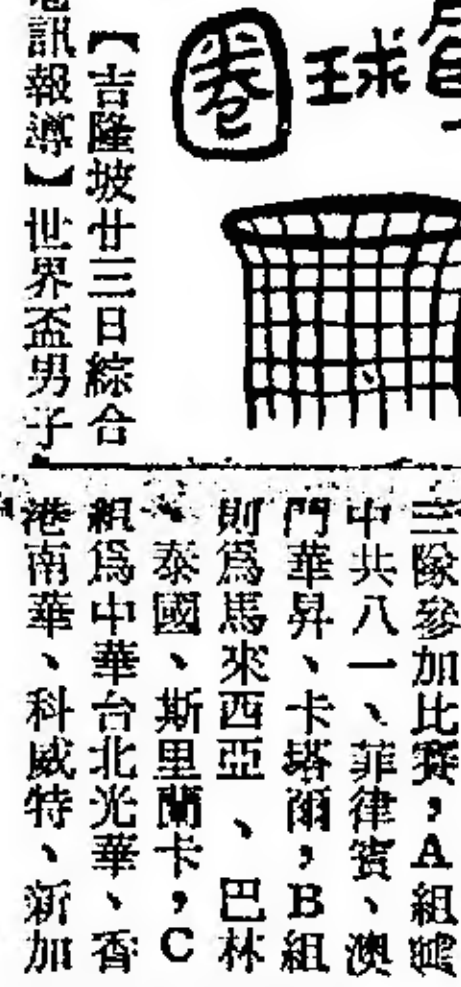 球圈
【吉隆坡廿三日綜合
訊報導】世界盃男子
三隊參加比賽，A組
中共八一、菲律賓、澳
門華昇、卡塔爾，B組
則爲馬來西亞、巴林
、泰國、斯里蘭卡，C
組爲中華台北光華、香
港南華、科威特、新加